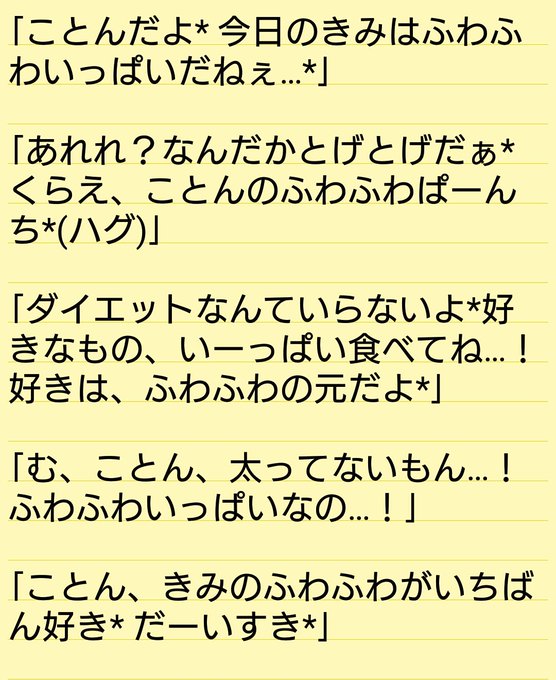 「ことんだよ* 今日のきみはふわふ
わいっぱいだねぇ…*」
「あれれ？なんだかとげとげだぁ*
くらえ、ことんのふわふわぱーん
ち*(ハグ)」
「ダイエットなんていらないよ*好
きなもの、いーっぱい食べてね…！
好きは、ふわふわの元だよ*」
「む、ことん、太ってないもん…！
ふわふわいっぱいなの…！」
「ことん、きみのふわふわがいちば
ん好き* だーいすき*」